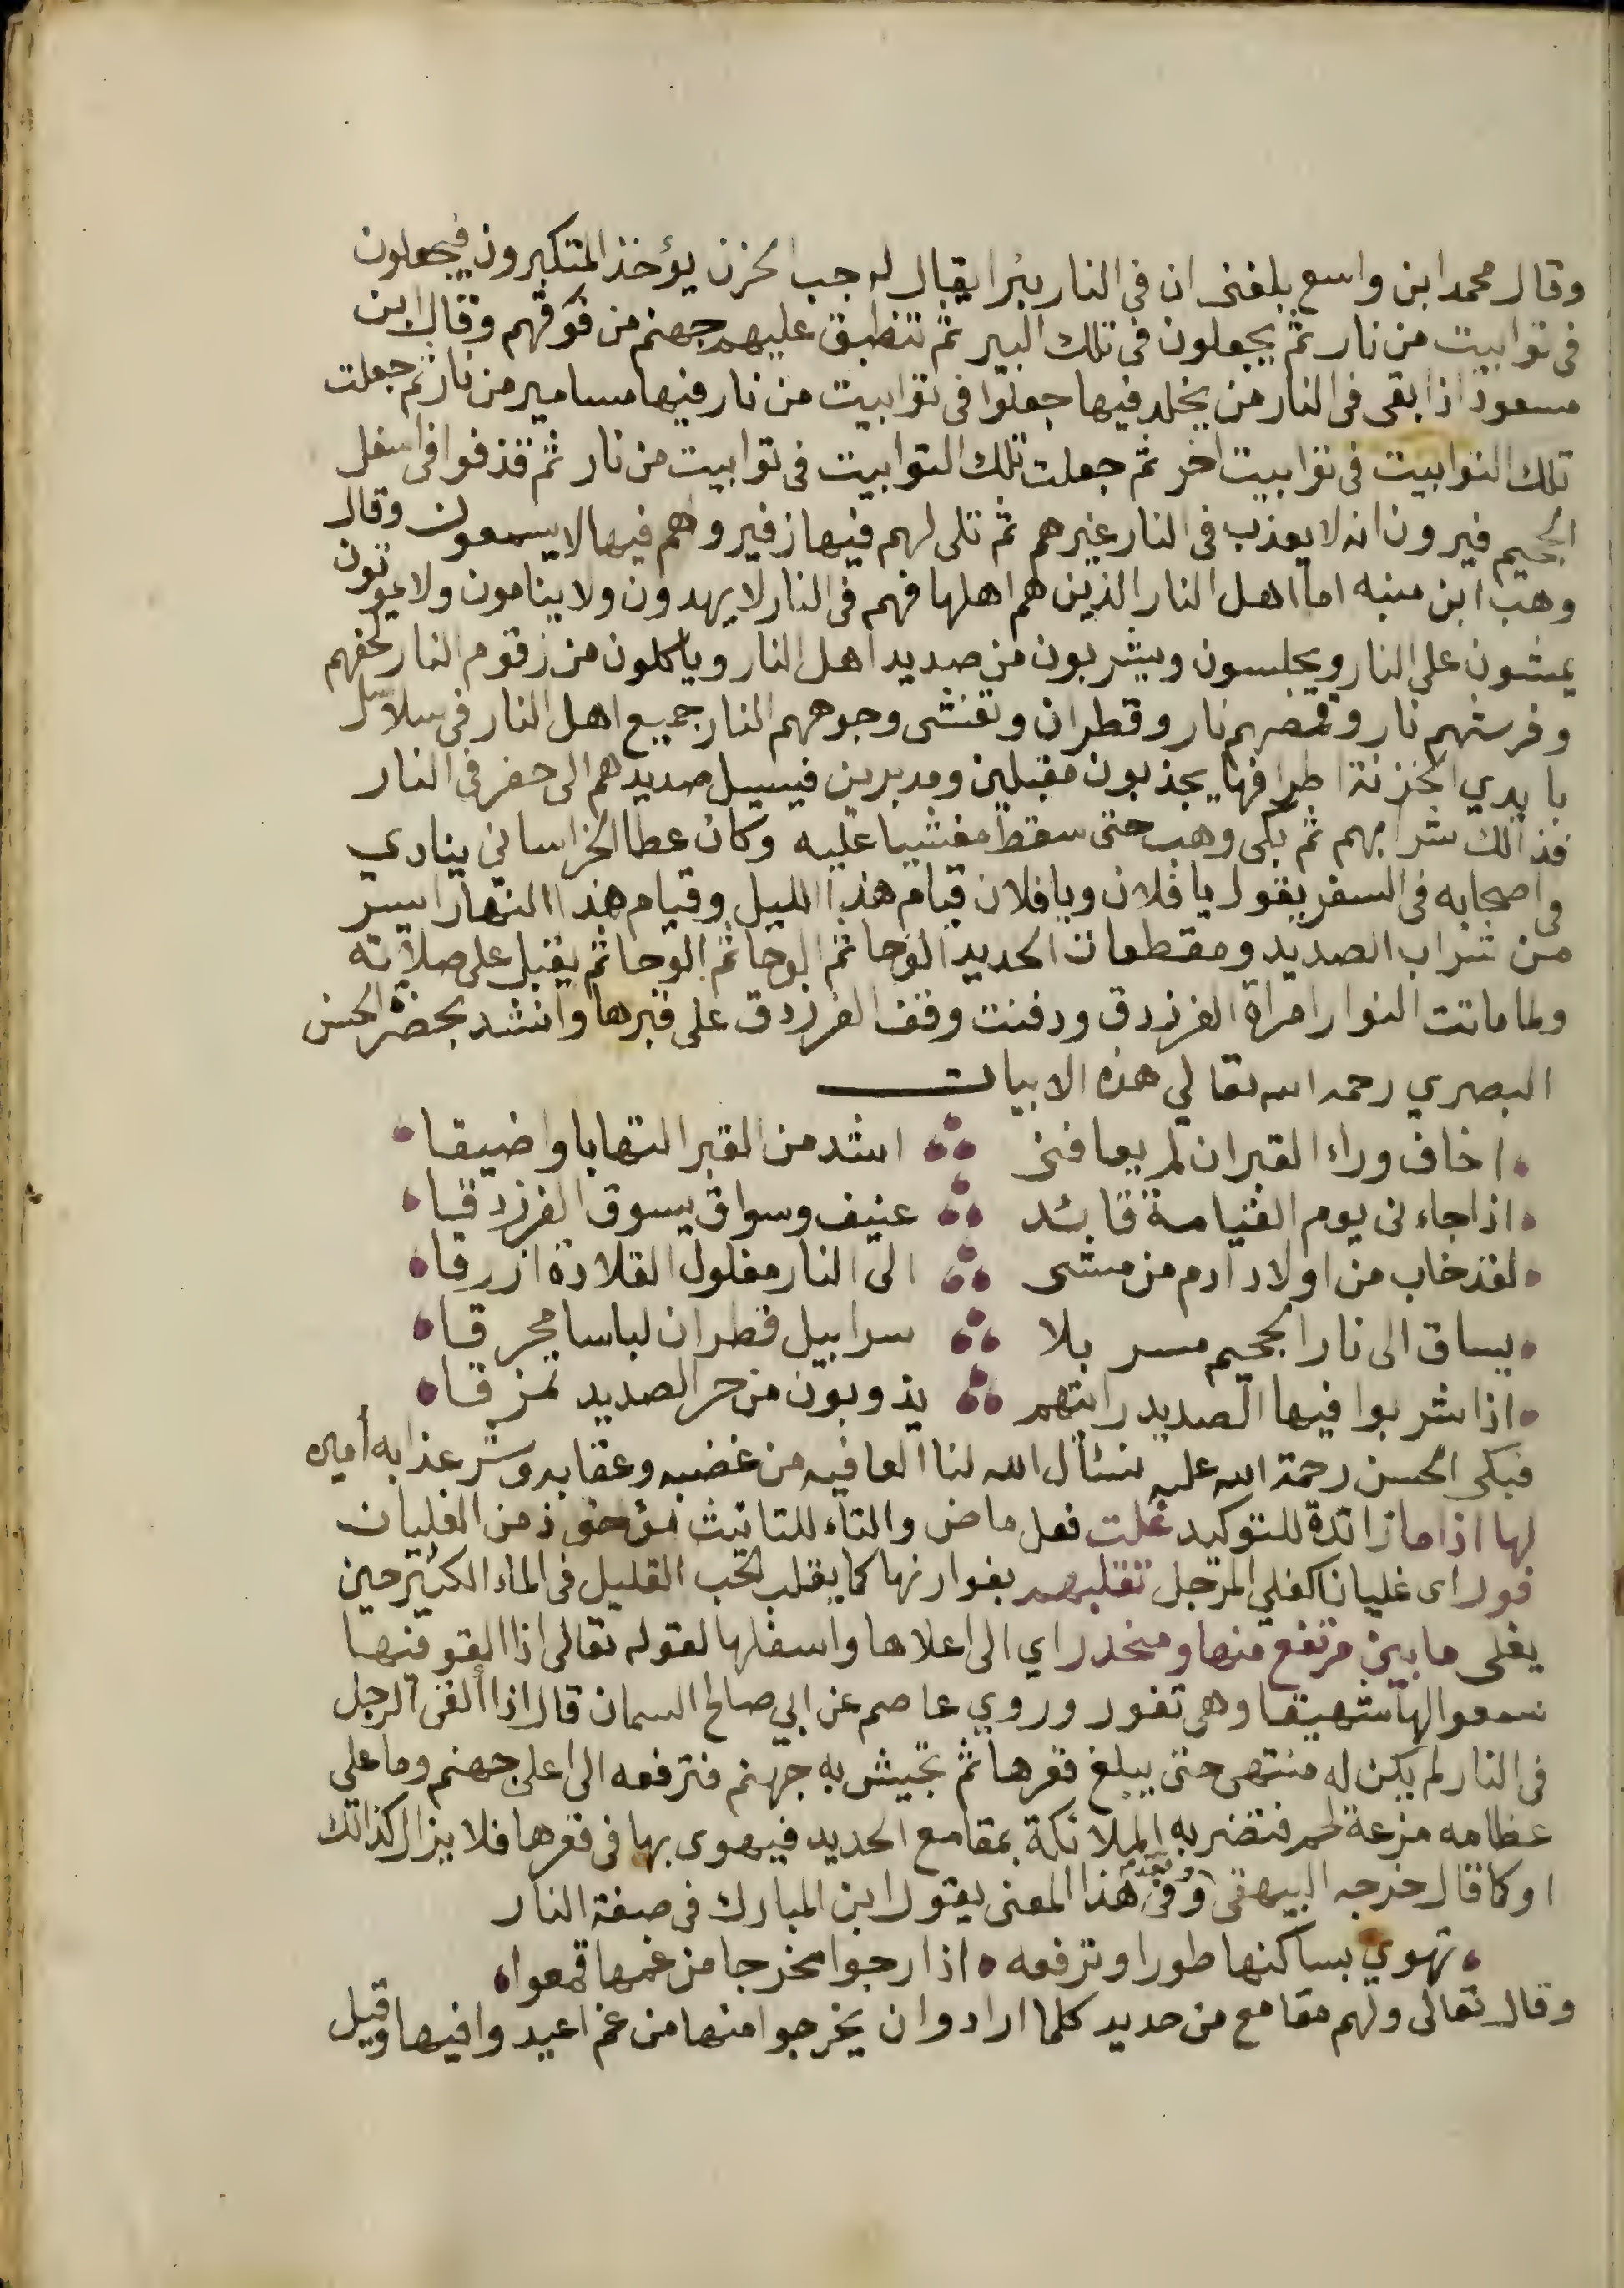 وقال محمد ابن واسع بلغنى ان فى النار بئرا يقال له جب الحزن يؤخذ المتكبرون فيجعلون
فى توابيت من نار ثم يجعلون فى تلك البير ثم تنطبق عليهم جهنم من فوقهم وقال ابن
مسعود اذا بقى فى النار من يخلد فيها جعلوا فى توابيت من نار فيها مسامير من نار ثم جعلت
تلك التوابيت فى توابيت اخر ثم جعلت تلك التوابيت فى توابيت من نار ثم قذفوا فى اسفل
الجحيم فيرون انه لا يعذب فى النار غيرهم ثم تلى لهم فيها زفير وهم فيها لا يسمعون وقال
وهب ابن منبه اما اهل النار الذين هم اهلها فهم فى النار لا يهدون ولا ينامون ولا يموتون
يمشون على النار ويجلسون ويشربون من صديد اهل النار وياكلون من زقوم النار لحفهم
وفرشهم نار وقمصهم نار وقطران وتغشى وجوههم النار جميع اهل النار فى سلاسل
بايدي الخزنة اطرافها يجذبون مقبلين ومدبرين فيسيل صديدهم الى حفر فى النار
فذالك شرابهم ثم بكى وهب حتى سقط مغشيا عليه وكان عطا الخراساني ينادي
فى اصحابه فى السفر يقول يا فلان ويا فلان قيام هذا الليل وقيام هذا النهار ايسر
من شراب الصديد ومقطعات الحديد الوحا ثم الوحا ثم الوحا ثم يقبل على صلاته
ولما ماتت النوار امراة الفرزدق ودفنت وقف الفرزدق على قبرها وانشد بحضرة الحسن
البصري رحمه الله تعالي هذه الابيات
اخاف وراء القبر ان لم يعافنى اشد من القبر التهابا واضيقا
اذا جاءنى يوم القيامة قائد عنيف وسواق يسوق الفرزدقا
لقد خاب من اولاد ادم من مشى الى النار مغلول القلادة ازرقا
يساق الى نار الجحيم مسربلا سرابيل قطران لباسا محرقا
اذا شربوا فيها الصديد رايتهم يذوبون من حر الصديد تمزقا
فبكى الحسن رحمة الله عليه نسئال الله لنا العافيه من غضبه وعقابه وشر عذابه أمين
لها اذا ما زائدة للتوكيد غلت فعل ماض والتاء للتانيث مأخوذ من الغليان
فور اى غليانا كغلي المرجل تقلبهم بفوارنها كما يقلب الحب القليل فى الماء الكثير حين
يغلى ما بين مرتفع منها ومنحدر اي الى اعلاها واسفلها لقوله تعالى اذا القو فيها
سمعوا لها شهيقا وهى تفور وروي عاصم عن ابي صالح السمان قال اذا ألقى الرجل
فى النار لم يكن له منتهى حتى يبلغ قعرها ثم تجيش به جهنم فترفعه الى اعلى جهنم وما على
عظامه مزعة لحم فتضربه الملائكة بمقامع الحديد فيهوى بها فى قعرها فلا يزال كذالك
او كما قال خرجه البيهقى وفى هذا المعنى يقول ابن المبارك فى صفة النار
تهوي بساكنها طورا وترفعه اذا رجوا مخرجا من غمها قمعوا
وقال تعالى ولهم مقامع من حديد كلما ارادوا ن يخرجوا منها من غم اعيدوا فيها وقيل